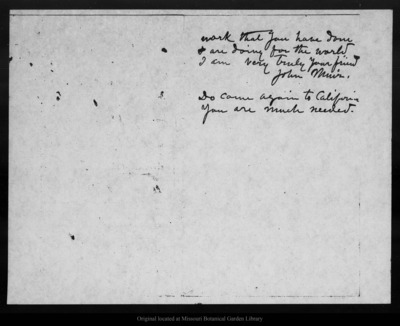 work that you have done
& are doing for the world
I am very truly your friend
John Muir.
Do come again to California
You are much needed.
Original located at Missouri Botanical Garden Library